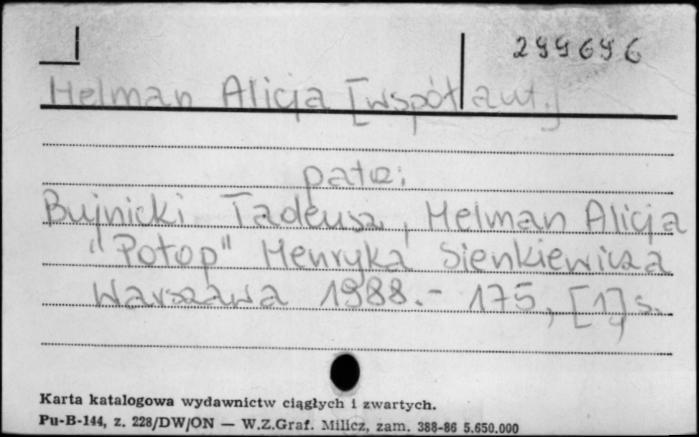 299696
Helman Alicja [współaut.]
patrz:
Bujnicki Tadeusz, Helman Alicja
"Potop" Henryka Sienkiewicza
Warszawa 1988.- 175, [1] s.
Karta katalogowa wydawnictw ciągłych i zwartych.
Pu-B-144, z. 228/DW/ON — W.Z.Graf. Milicz, zam. 388-86 5.650.000